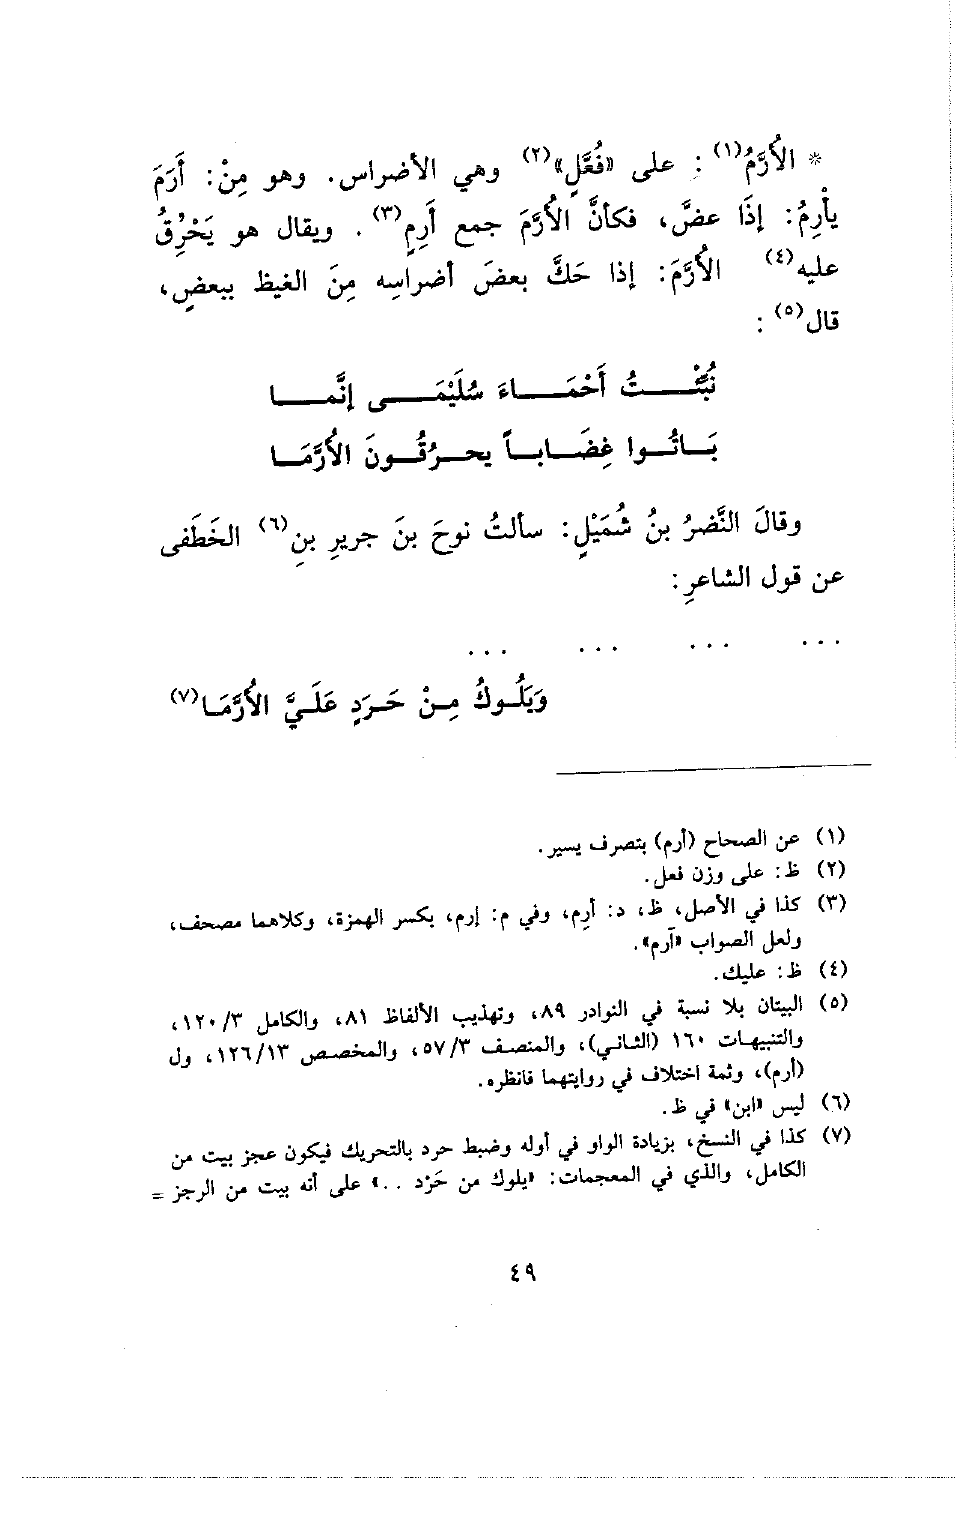 * الأُرَّمُ(١) : على «فُعَّلٍ»(٢) وهي الأضراس. وهو مِنْ: أَرَمَ
يأْرِمُ: إذَا عضَّ، فكأنَّ الأُرَّمَ جمع أَرِمٍ(٣) . ويقال هو يَحْرِقُ
عليه(٤) الأُرَّمَ: إذا حَكَّ بعضَ أضراسِه مِنَ الغيظ ببعضٍ،
قال(٥) :
نُبِّئْتُ أَحْمَاءَ سُلَيْمَى إنَّما
بَاتُوا غِضَاباً يحرُقُونَ الأُرَّمَا
وقالَ النَّضرُ بنُ شُمَيْلٍ: سألتُ نوحَ بنَ جريرِ بنِ(٦) الخَطَفى
عن قول الشاعرِ:
... ... ... ...
وَيَلُوكُ مِنْ حَرَدٍ عَلَيَّ الأُرَّمَا(٧)
(١) عن الصحاح (أرم) بتصرف يسير.
(٢) ظ: على وزن فعل.
(٣) كذا في الأصل، ظ، د: أرِم، وفي م: إرم، بكسر الهمزة، وكلاهما مصحف،
ولعل الصواب «آرم».
(٤) ظ: عليك.
(٥) البيتان بلا نسبة في النوادر ٨٩، وتهذيب الألفاظ ٨١، والكامل ١٢٠/٣،
والتنبيهات ١٦٠ (الثاني)، والمنصف ٥٧/٣، والمخصص ١٢٦/١٣، ول
(أرم)، وثمة اختلاف في روايتهما فانظره.
(٦) ليس «ابن» في ظ.
(٧) كذا في النسخ، بزيادة الواو في أوله وضبط حرد بالتحريك فيكون عجز بيت من
الكامل، والذي في المعجمات: «يلوك من حَرْد ..» على أنه بيت من الرجز =
٤٩